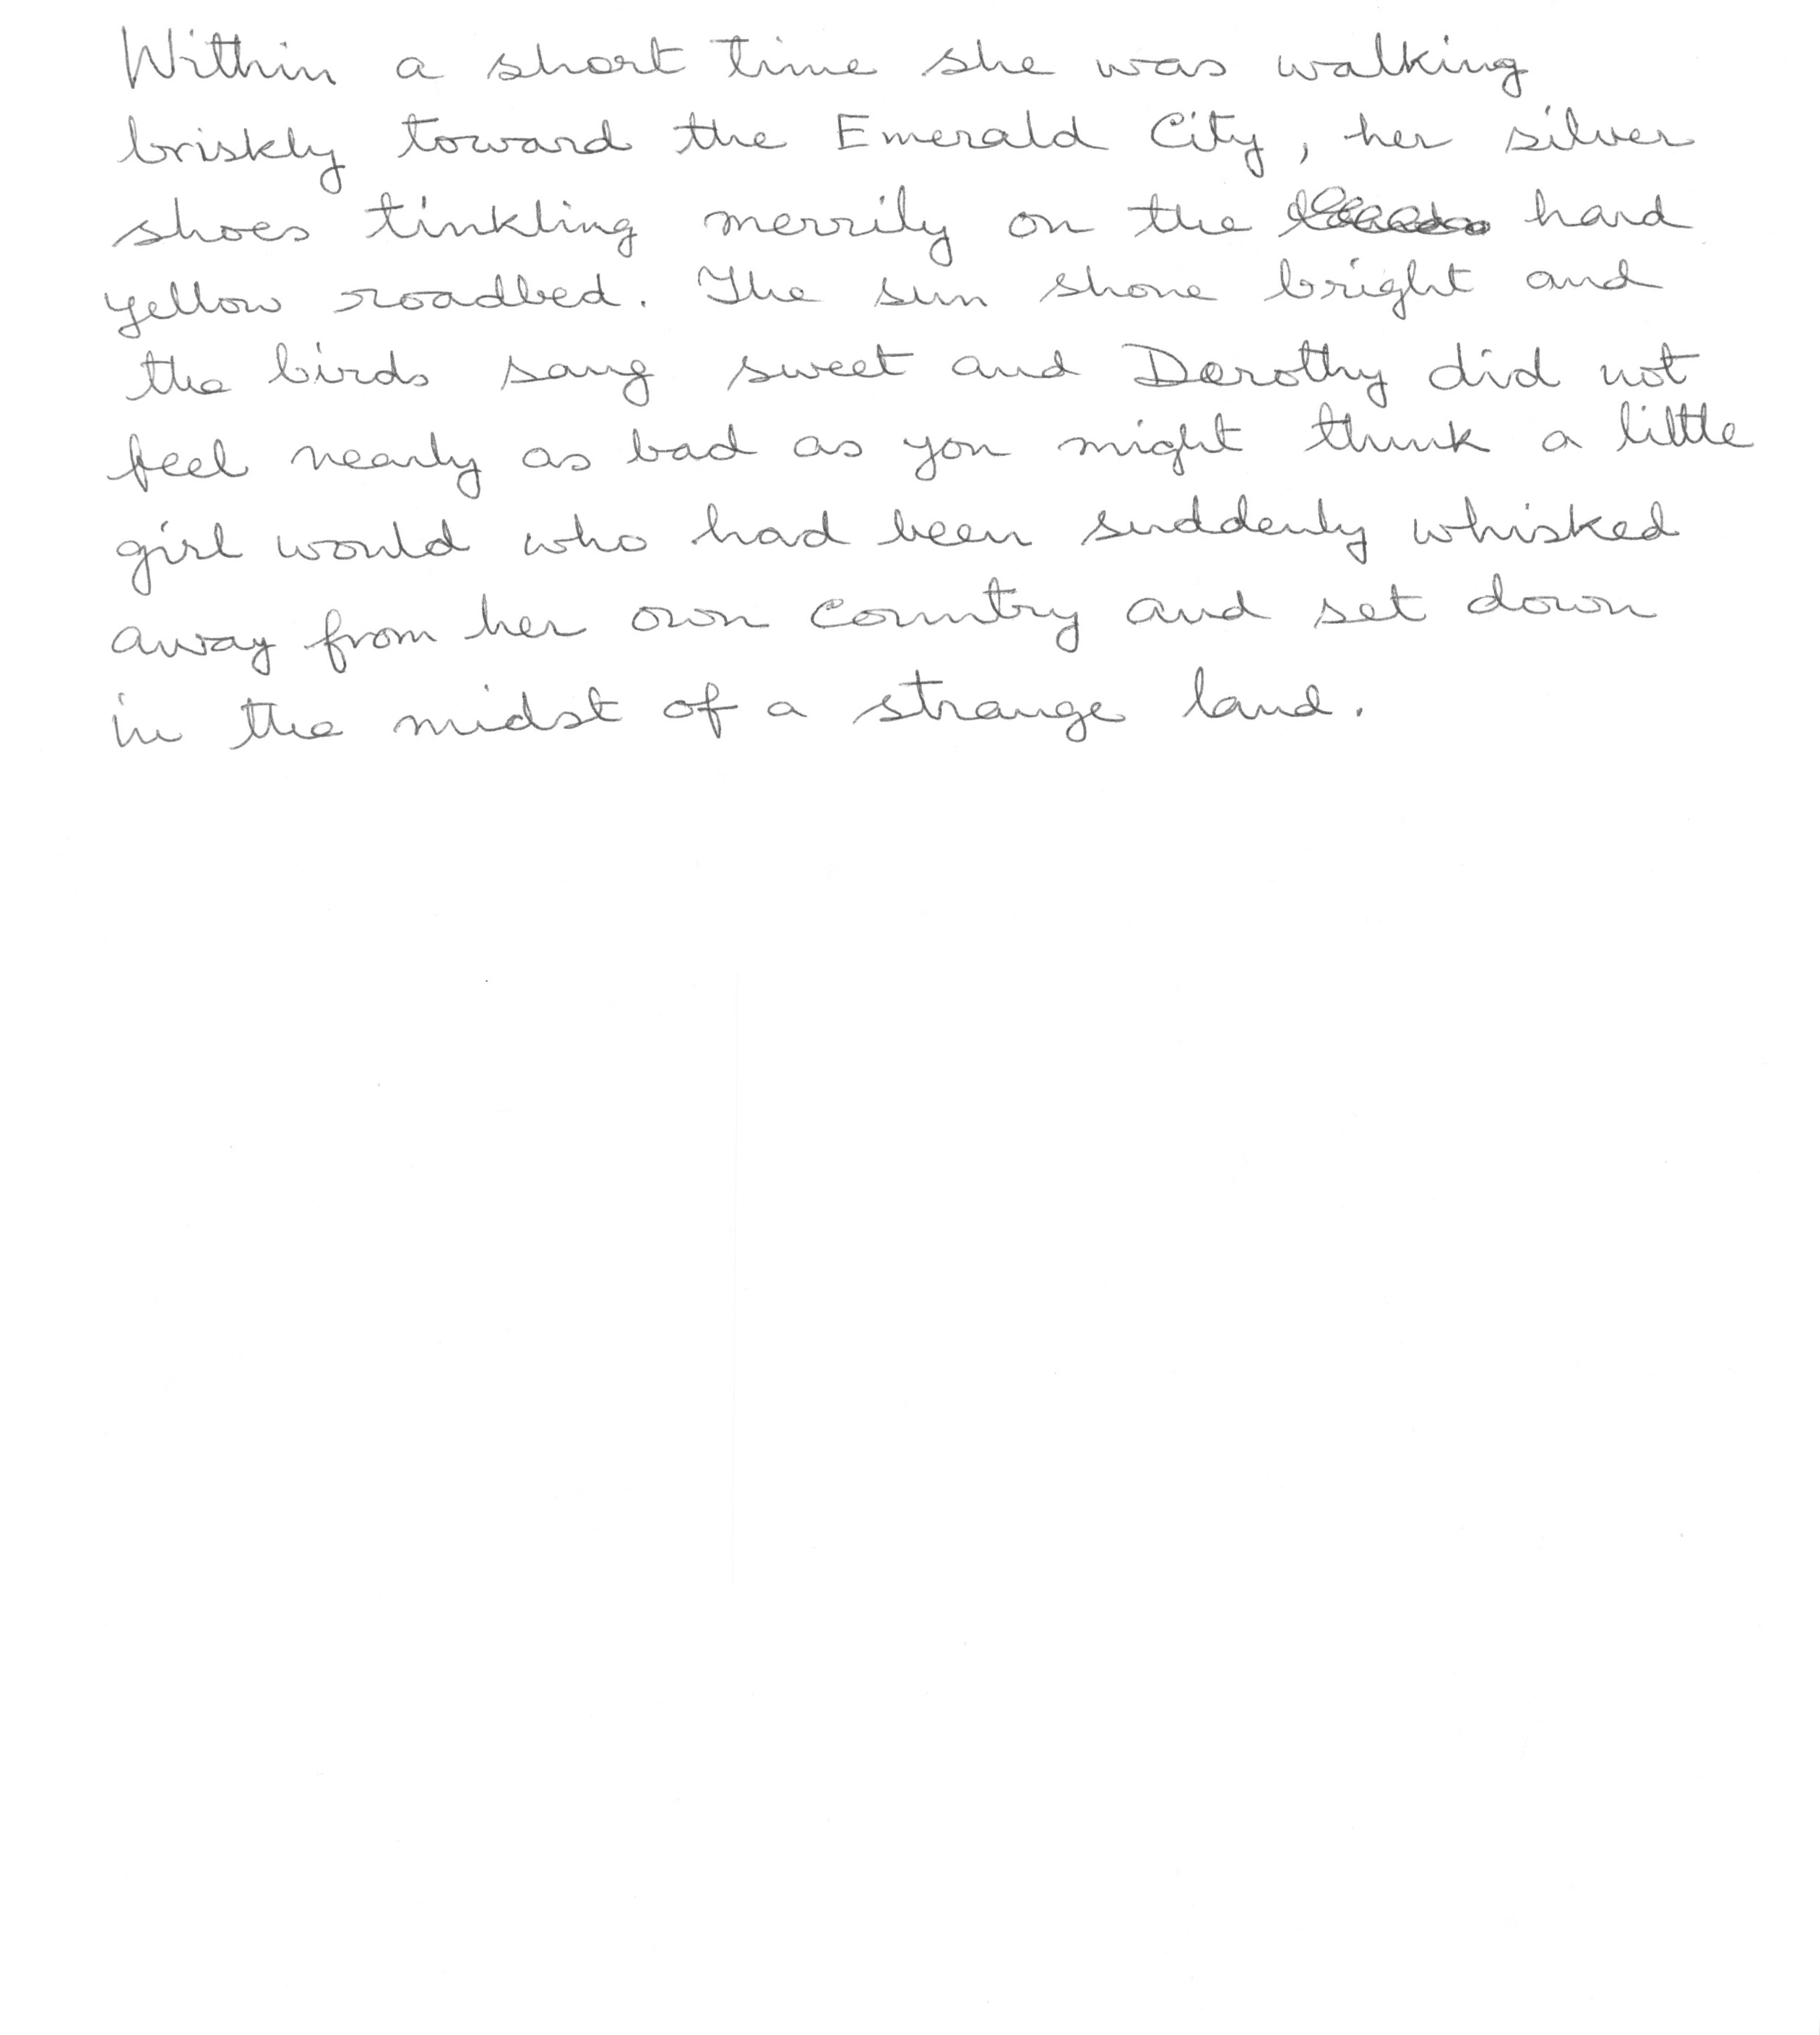 Within a short time she was walking
briskly toward the Emerald City, her silver
shoes tinkling merrily on the hard
yellow roadbed. The sun shone bright and
the birds sang sweet and Dorothy did not
feel nearly as bad as you might think a little
girl would who had been suddenly whisked
away from her own country and set down
in the midst of a strange land.